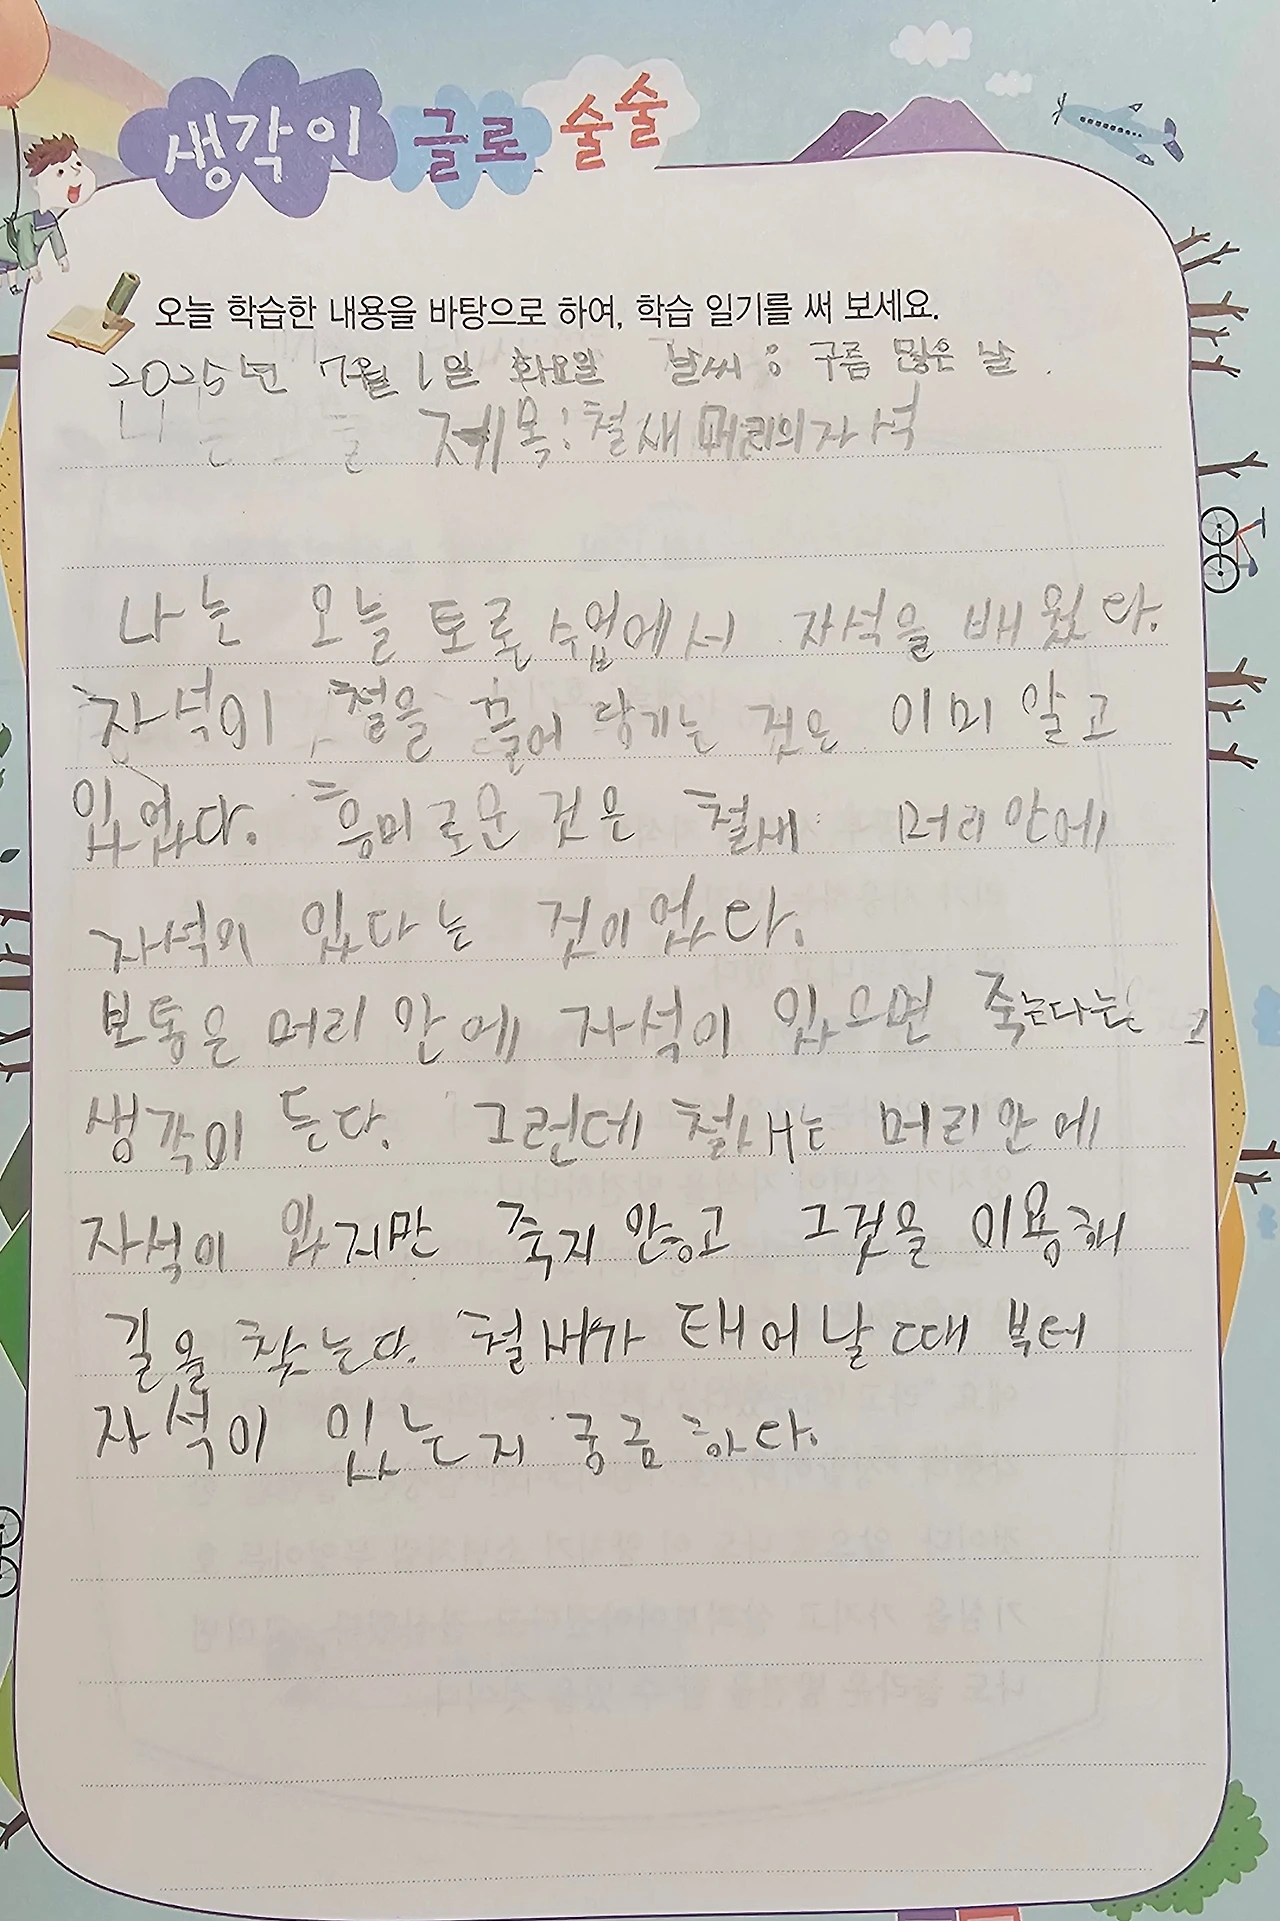 생각이 글로 술술
오늘 학습한 내용을 바탕으로 하여, 학습 일기를 써 보세요.
2025년 7월 1일 화요일 날씨 : 구름 많은 날.
제목:철새 머리의자석
나는 오늘 토론 수업에서 자석을 배웠다.
자석이 철을 끌어 당기는 것은 이미 알고
있었다. 흥미로운 것은 철새 머리 안에
자석이 있다는 것이었다.
보통은 머리 안에 자석이 있으면 죽는다는
생각이 든다. 그런데 철새는 머리안에
자석이 있지만 죽지 않고 그것을 이용해
길을 찾는다. 철새가 태어날때 부터
자석이 있는지 궁금하다.